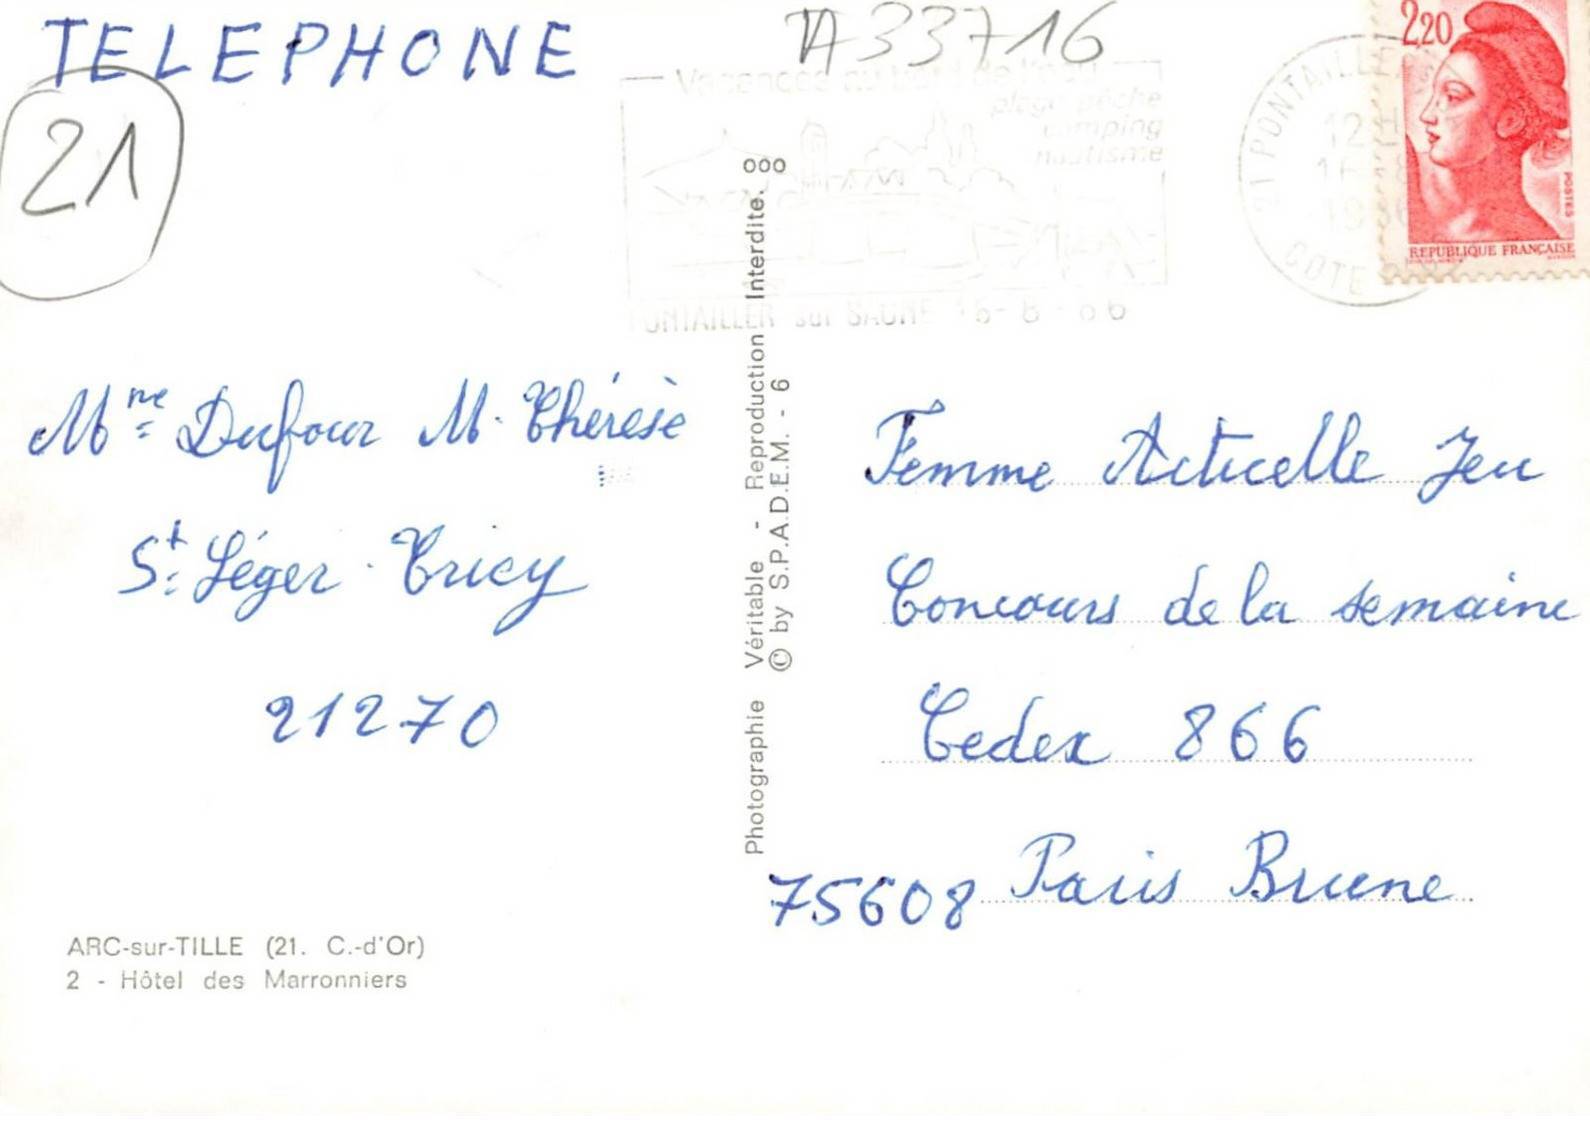 TELEPHONE
TA 33716
21
Vacances au bord de l'eau
plage pêche
camping
nautisme
PONTAILLER sur SAONE 16-8-86
21 PONTAILLER
COTE D'OR
2,20
POSTES
REPUBLIQUE FRANÇAISE
Mme Dufour M. Thérèse
St Léger-Tricy
21270
ARC-sur-TILLE (21. C.-d'Or)
2 - Hôtel des Marronniers
Photographie Véritable - Reproduction Interdite.
© by S.P.A.D.E.M. - 6
Femme Actuelle Jeu
Concours de la semaine
Cedex 866
75608 Paris Brune